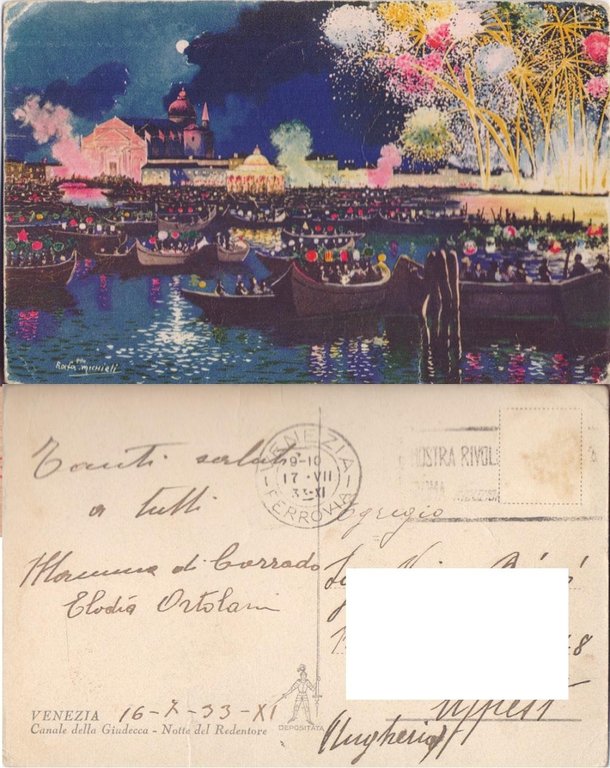 Rafa. Michieli
Tanti saluti
a tutti
Mamma di Corrado
Elodia Ortolani
VENEZIA
16-7-33-XI
Canale della Giudecca - Notte del Redentore
DEPOSITATA
VENEZIA
9-10
17·VII
33·XI
FERROVIA
MOSTRA RIVOL
ROMA
Egregio
8
Ujpest
(Ungheria)